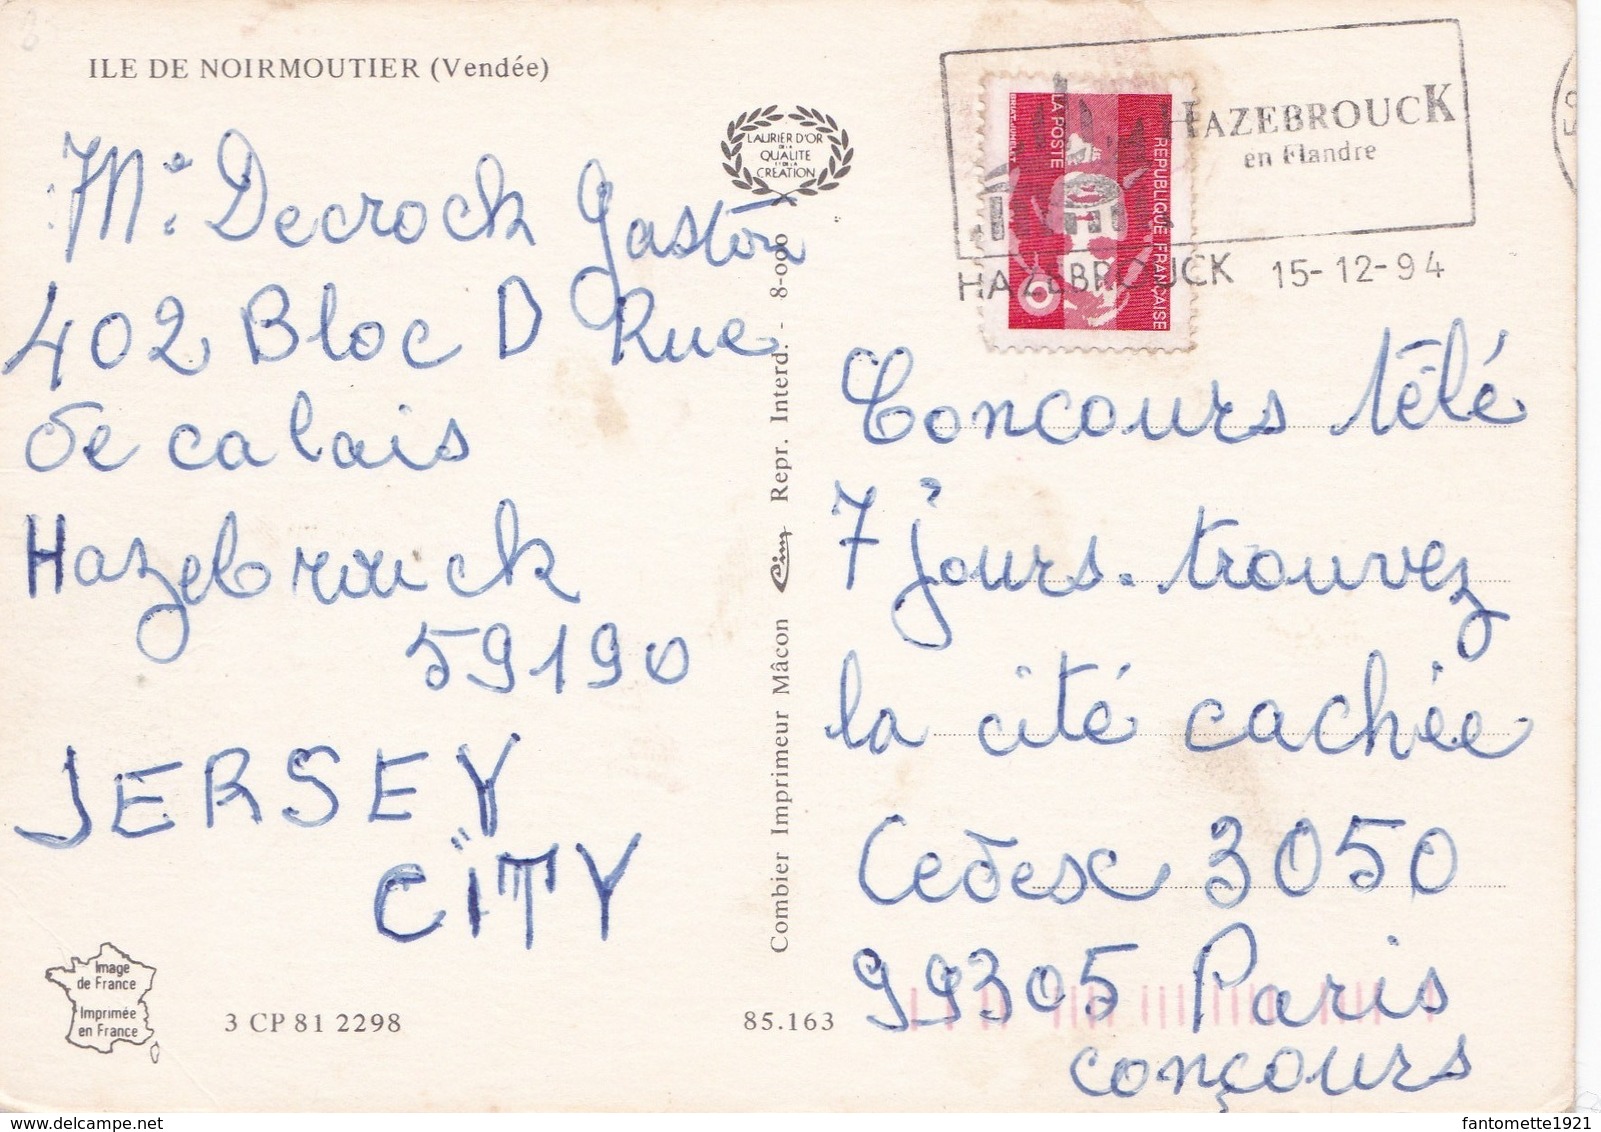 ILE DE NOIRMOUTIER (Vendée)
Mr Decrock Gaston
402 Bloc D Rue
de calais
Hazebrouck
59190
JERSEY
CÏTY
Image
de France
Imprimée
en France
3 CP 81 2298
85.163
LAURIER D'OR
DE LA
QUALITE
ET DE LA
CREATION
Combier Imprimeur Mâcon Cim Repr. Interd. - 8-000
LA POSTE
REPUBLIQUE FRANÇAISE
HAZEBROUCK
en Flandre
HAZEBROUCK 15-12-94
Concours télé
7 jours. trouvez
la cité cachée
Cedex 3050
99305 Paris
conçours
www.delcampe.net
fantomette1921